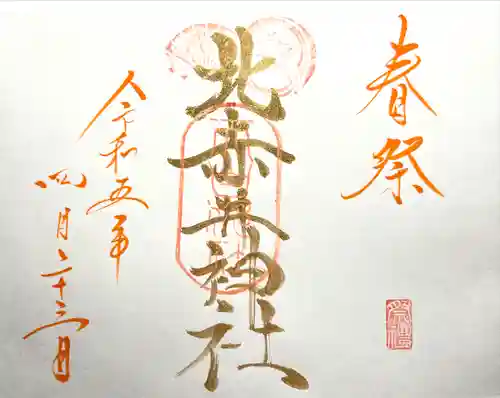 春祭
北赤井神社
令和五年
四月二十三日